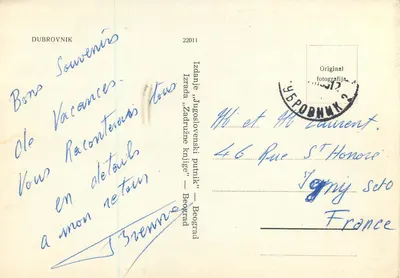 DUBROVNIK
22011
Original
fotografija
ДУБРОВНИК 2
Bons Souvenirs
de Vacances.
Vous Raconterons tous
en détails
a mon retour
Izdanje „Jugoslovenski putnik” — Beograd
Izrada „Zadružne knjige” — Beograd
M et M Laurent.
46 Rue St Honoré
France